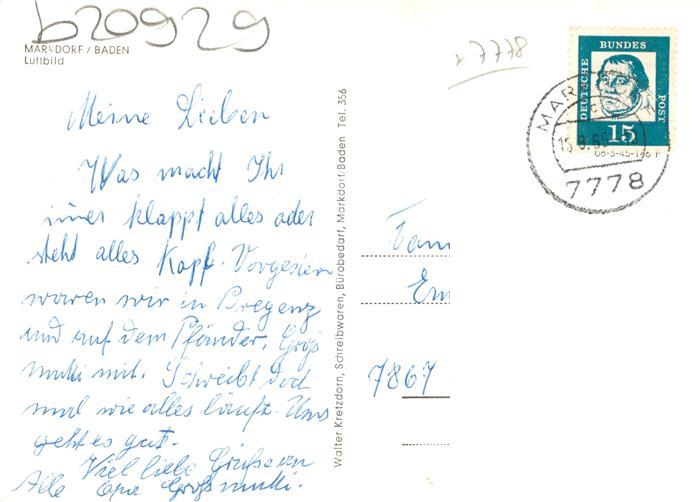 b20929
MARKDORF / BADEN
Luftbild
x 7778
DEUTSCHE BUNDES POST
15
08-3-45-146 F
MARKDORF
15.8.65
7778
Meine Lieben
Was macht Ihr
imer klappt alles oder
steht alles Kopf. Vorgestern
waren wir in Bregenz
und auf dem Pfänder, Groß
mutti mit. Schreibt doch
mal wie alles läuft. Uns
geht es gut.
Viel liebe Grüsse an
Alle Opa Großmutti.
Walter Kretzdorn, Schreibwaren, Bürobedarf, Markdorf/Baden Tel. 356
Fam
Em
7867